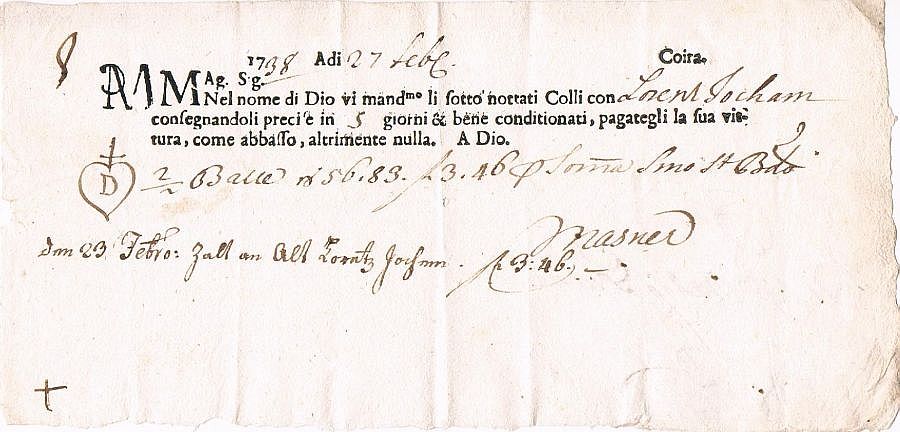 1738 Adi 27 feb. Coira.
Mag. Sig.
Nel nome di Dio vi mand.mo li sotto nottati Colli con Lorent Jocham
consegnandoli precise in 5 giorni & bene conditionati, pagategli la sua vit-
tura, come abbasso, altrimente nulla. A Dio.
D
2/2 Balle 56.83. f 3.46 Soma
Masner
den 23 Febro: Zalt an Alt Loratz Jochem. f 3:46.